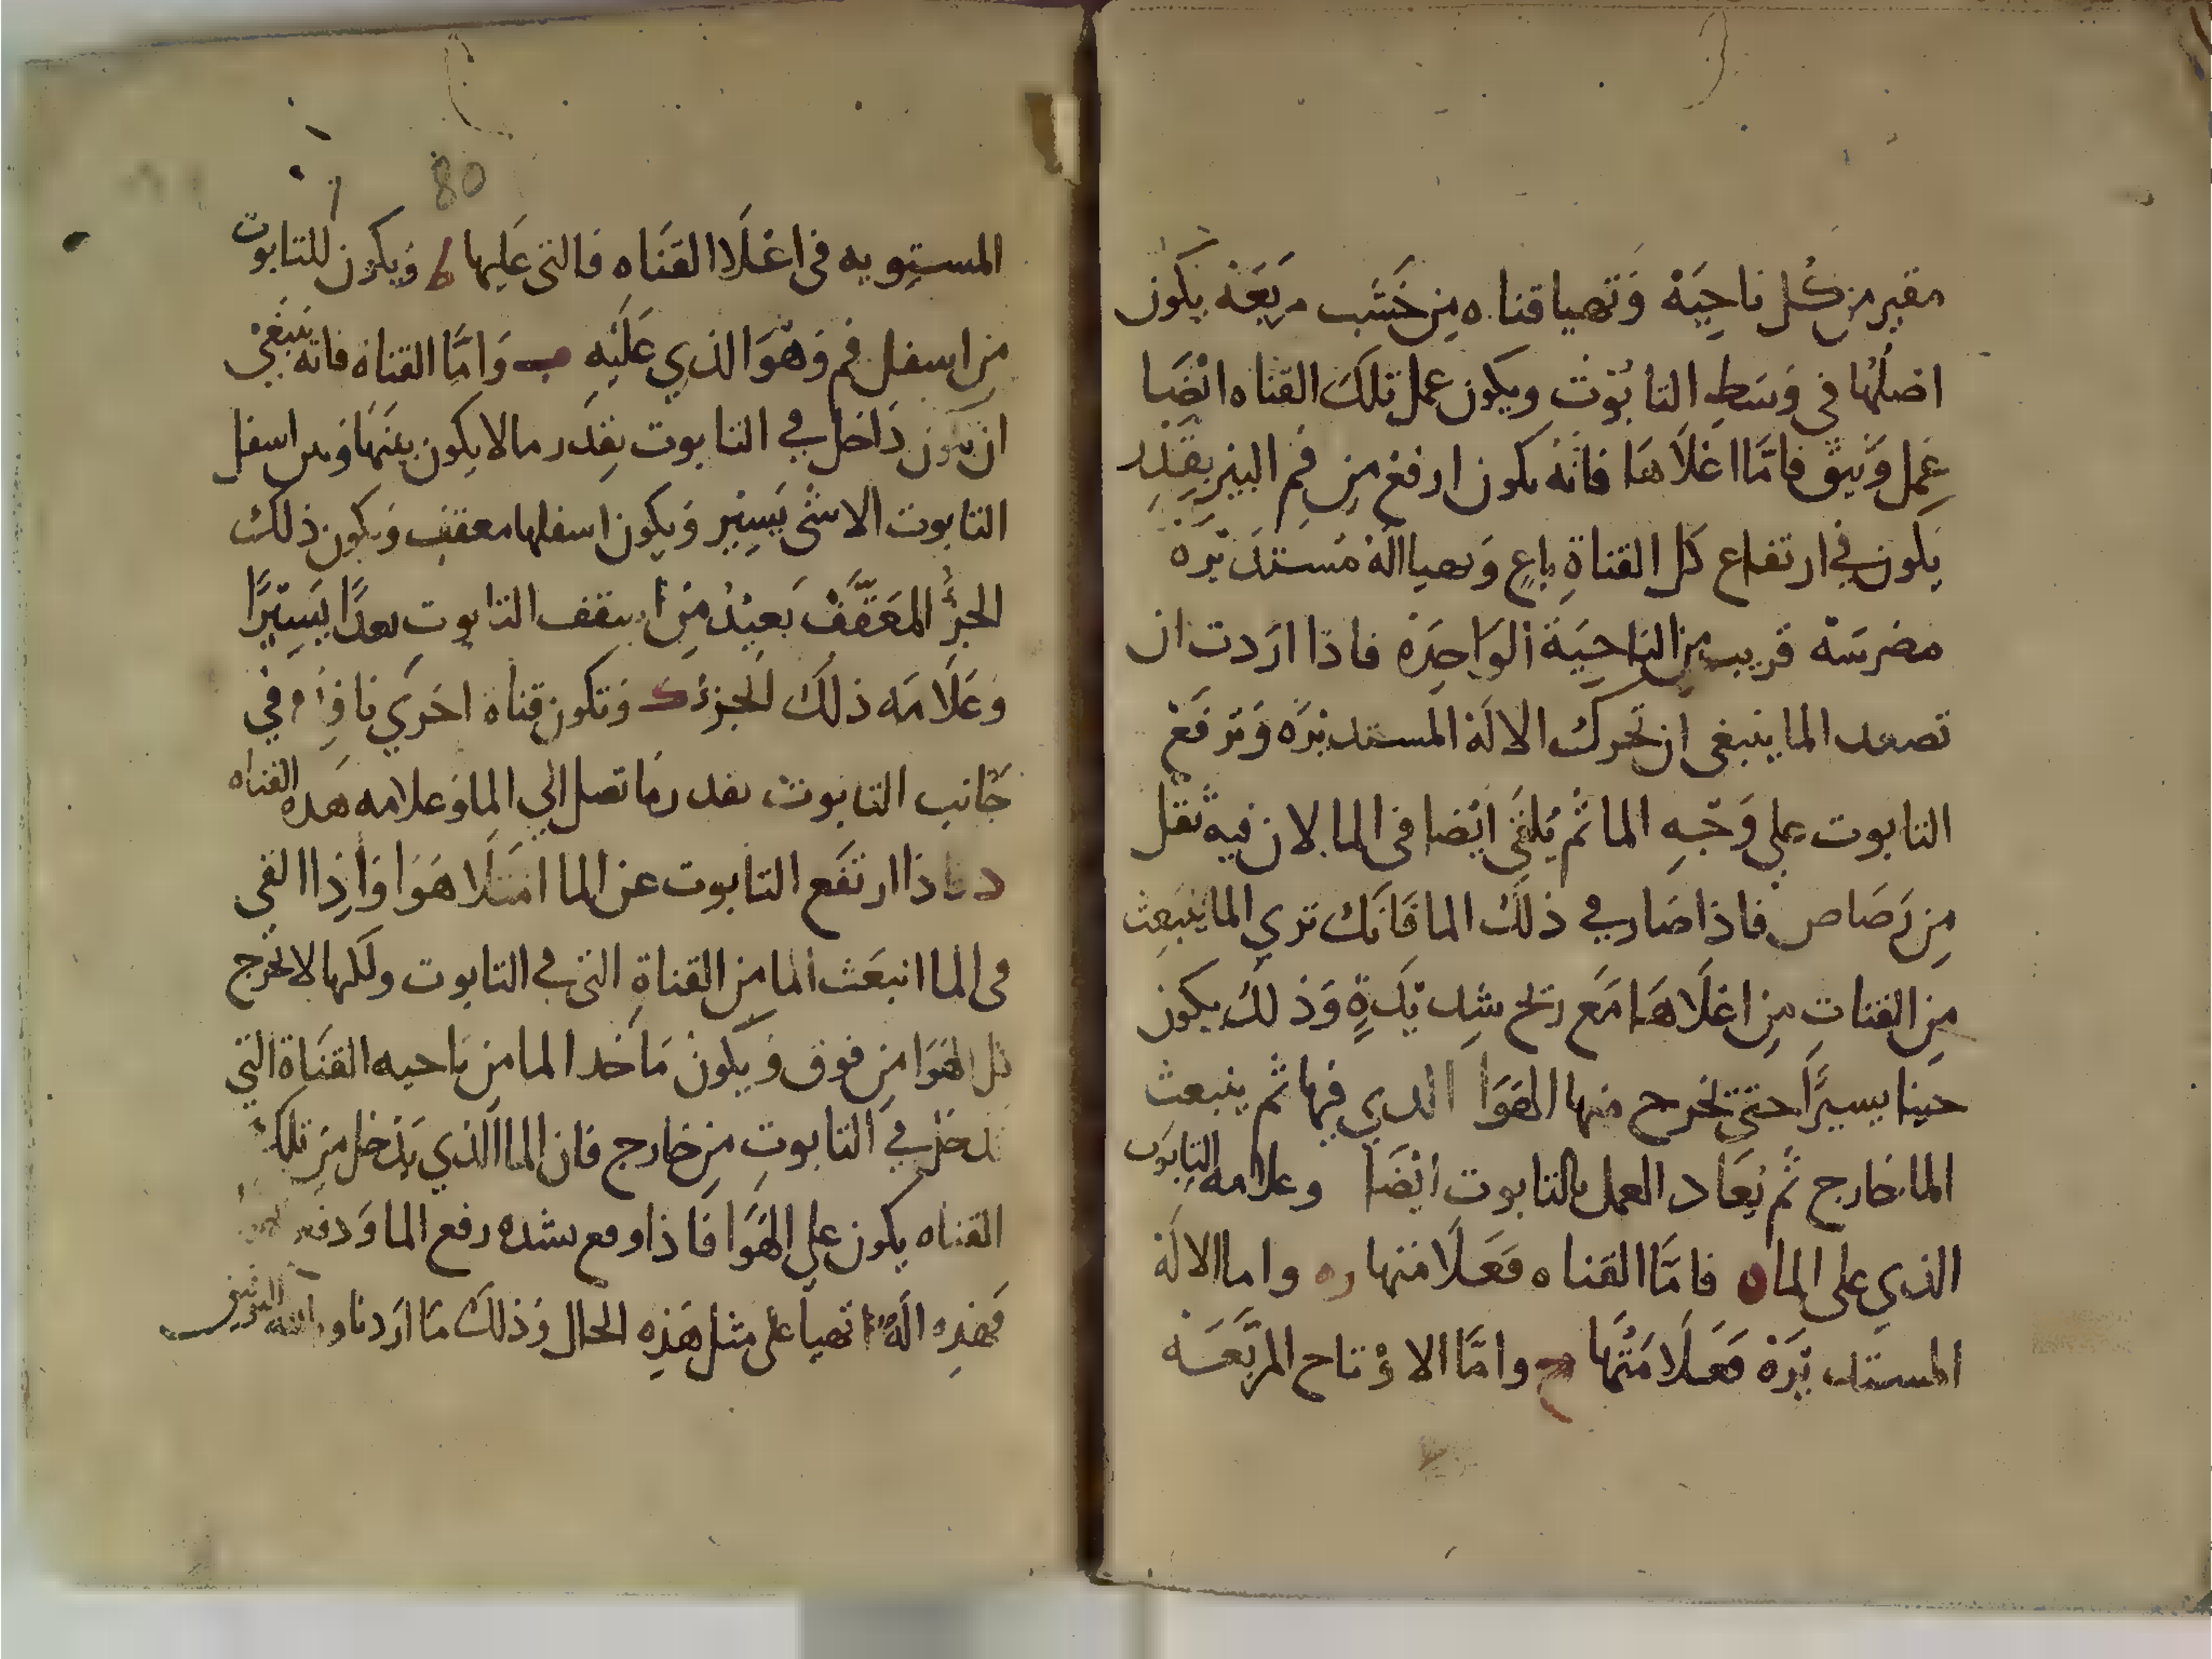 مقير من كُل ناحِيَة وَتهيا قناه مِن خَشَب مربَعَه يكون
اصلُها في وَسَطِ التابُوْت ويكون عمل تلكَ القناه ايْضَا
عِمل وَثيق فامَّا اعْلاهَا فانهُ يكون ارفع مِن فم البير بِقَدِر
يكون في ارتفاع كل القناةِ باعٍ وَتهيا الهُ مُستدَيْرَه
مضرسَة قريب مِن الناحِيَة الوَاحِدَة فاذا ارَدت ان
تصعد الما ينبغى ان تحرك الالَة المستديْرَه وَترفَعْ
التابوت علي وَجْهِ الما ثُم يُلقَى ايْضا فى الما لان فيه ثقل
مِن رَصَاص فاذا صَار في ذلكَ الما فانَك ترى الما يَنبَعِث
مِن القناتِ مِن اعْلَاهَا مَع ريح شِديْدَةٍ وَذلكَ يكون
حيْنا يسيرًا حتى تخرج منها الهَوَا الدي فيها ثم ينبعث
الما خارج ثُم يُعَاد العمل بالتابوت ايْضَا وعلامه التابوت
الذي على الما ن فامَّا القناه فعَلَامَتها ره واما الالَة
المستديْرَة فعَلَامَتُها ح وامَّا الاوْتاح المربَّعَه
80
المستويه فى اعْلَا القنَاه فالتى عَليها ط وَيكون للتابوت
مِن اسفل فم وَهوَ الذي عَلَيْهِ ب وَامَّا القناة فانه يَنبَغيْ
ان يكون دَاخل في التابوت بِقَدر ما لا يكون بينَها وَبين اسفل
التابوت الا شى يَسِيْر وَيكون اسفلها معقف وَيكون ذلك
الجزُ المعَقَّفْ بَعيْدُ مِن سقف التابوتِ بعدًا يَسِيْرًا
وَعَلَامَه ذلكَ الجزئ ك وَتكون قناة اخرَي في
جَانب التابوت بقدر مَا تصل الي الما وَعلامه هَده القناه
د فاذا ارتفَع التابوت عن الما امتلَا هَوَا وَاذِا القي
فى الما انبعَث الما مِن القناةِ التى في التابوت ولكنها لا تخرج
كل الهوَا مِن فوق وَيكون مَاخد الما مِن نَاحيه القنَاة التى
تدخل في التابوتِ مِن خارج فان الما الذي يَدْخل مِن تلك
القناه يكون على الهَوَا فاذا وقع بشده رفع الما وَدفع
فهذِه الَهٌ تهيا على مثل هَذِه الحال وَذلكَ مَا ارَدنا وبالله التوفيق